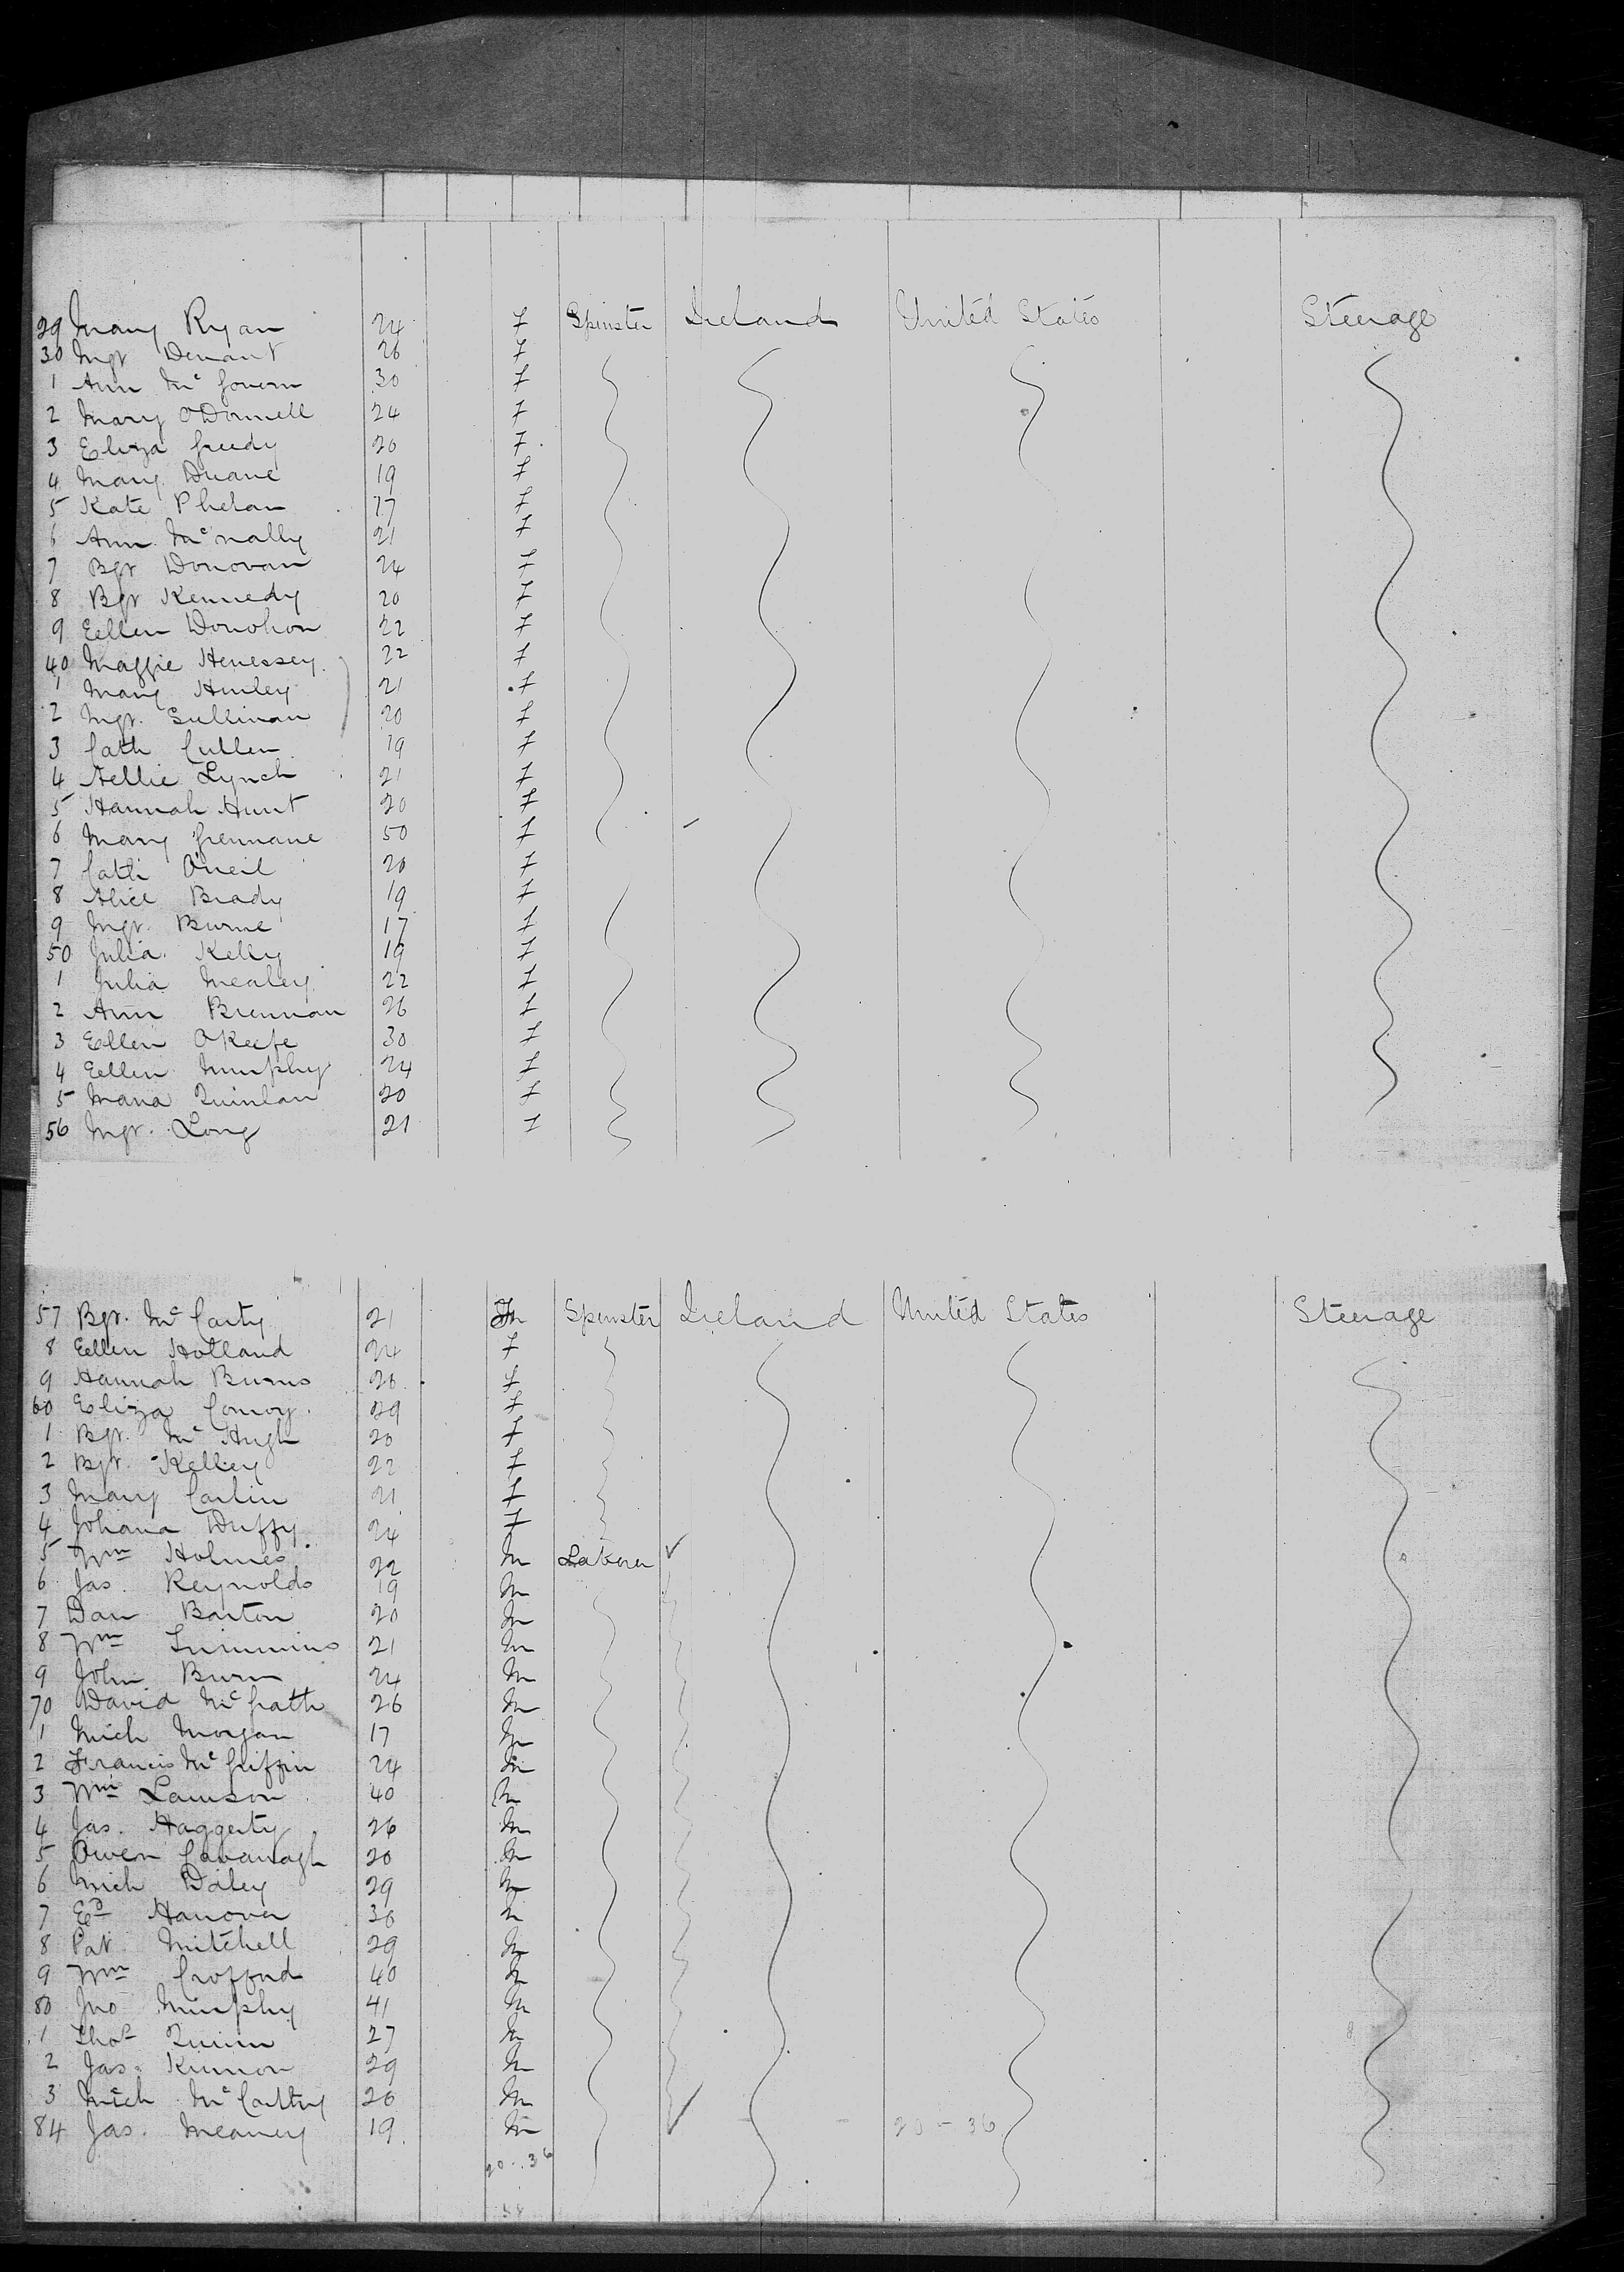 29 Mary Ryan 24 F Spinster Ireland United States Steerage
30 Mgt 26 F
1 Ann McGovern 30 F
2 Mary O'Donnell 24 F
3 Eliza Greedy 20 F
4 Mary Duane 19 F
5 Kate Phelan 17 F
6 Ann McNally 21 F
7 Bgt Donovan 24 F
8 Bgt Kennedy 20 F
9 Eellen Donohon 22 F
40 Maggie Henessey 22 F
1 Mary Hurley 21 F
2 Mgt. Sullivan 20 F
3 Cath Cullen 19 F
4 Nellie Lynch 21 F
5 Hannah Hunt 20 F
6 Mary Grennane 50 F
7 Cath O'Neil 20 F
8 Alice Brady 19 F
9 Mgt. Burne 17 F
50 Julia Kelly 19 F
1 Julia Mealey 22 F
2 Ann Brennan 26 F
3 Ellen O'Keefe 30 F
4 Eellen Murphy 24 F
5 Maria Quinlan 20 F
56 Mgt. Long 21 F
57 Bgt. McCarty 21 Spinster Ireland United States Steerage
8 Eellen Holland 24 F
9 Hannah Burns 20 F
60 Eliza Conroy 29 F
1 Bgt. McHugh 20 F
2 Bgt. Kelley 22 F
3 Mary Carlin 21 F
4 Johana Duffy 24 F
5 Wm Holmes 22 M Laborer
6 Jas. Reynolds 19 M
7 Dan Barton 20 M
8 Wm 21 M
9 John Burn 24 M
70 David McGrath 26 M
1 Mich Morgan 17 M
2 Francis McGriffin 24 M
3 Wm Lawson 40 M
4 Jas. Haggerty 26 M
5 Owen Cavanagh 20 M
6 Mich Daley 29 M
7 Ed Hanover 36 M
8 Pat Mitchell 29 M
9 Wm Crofford 40 M
80 Jno Murphy 41 M
1 Thos Quinn 27 M
2 Jas. 29 M
3 Mich McCarthy 26 M
84 Jas. Meaney 19 M 20 - 36
20 - 36